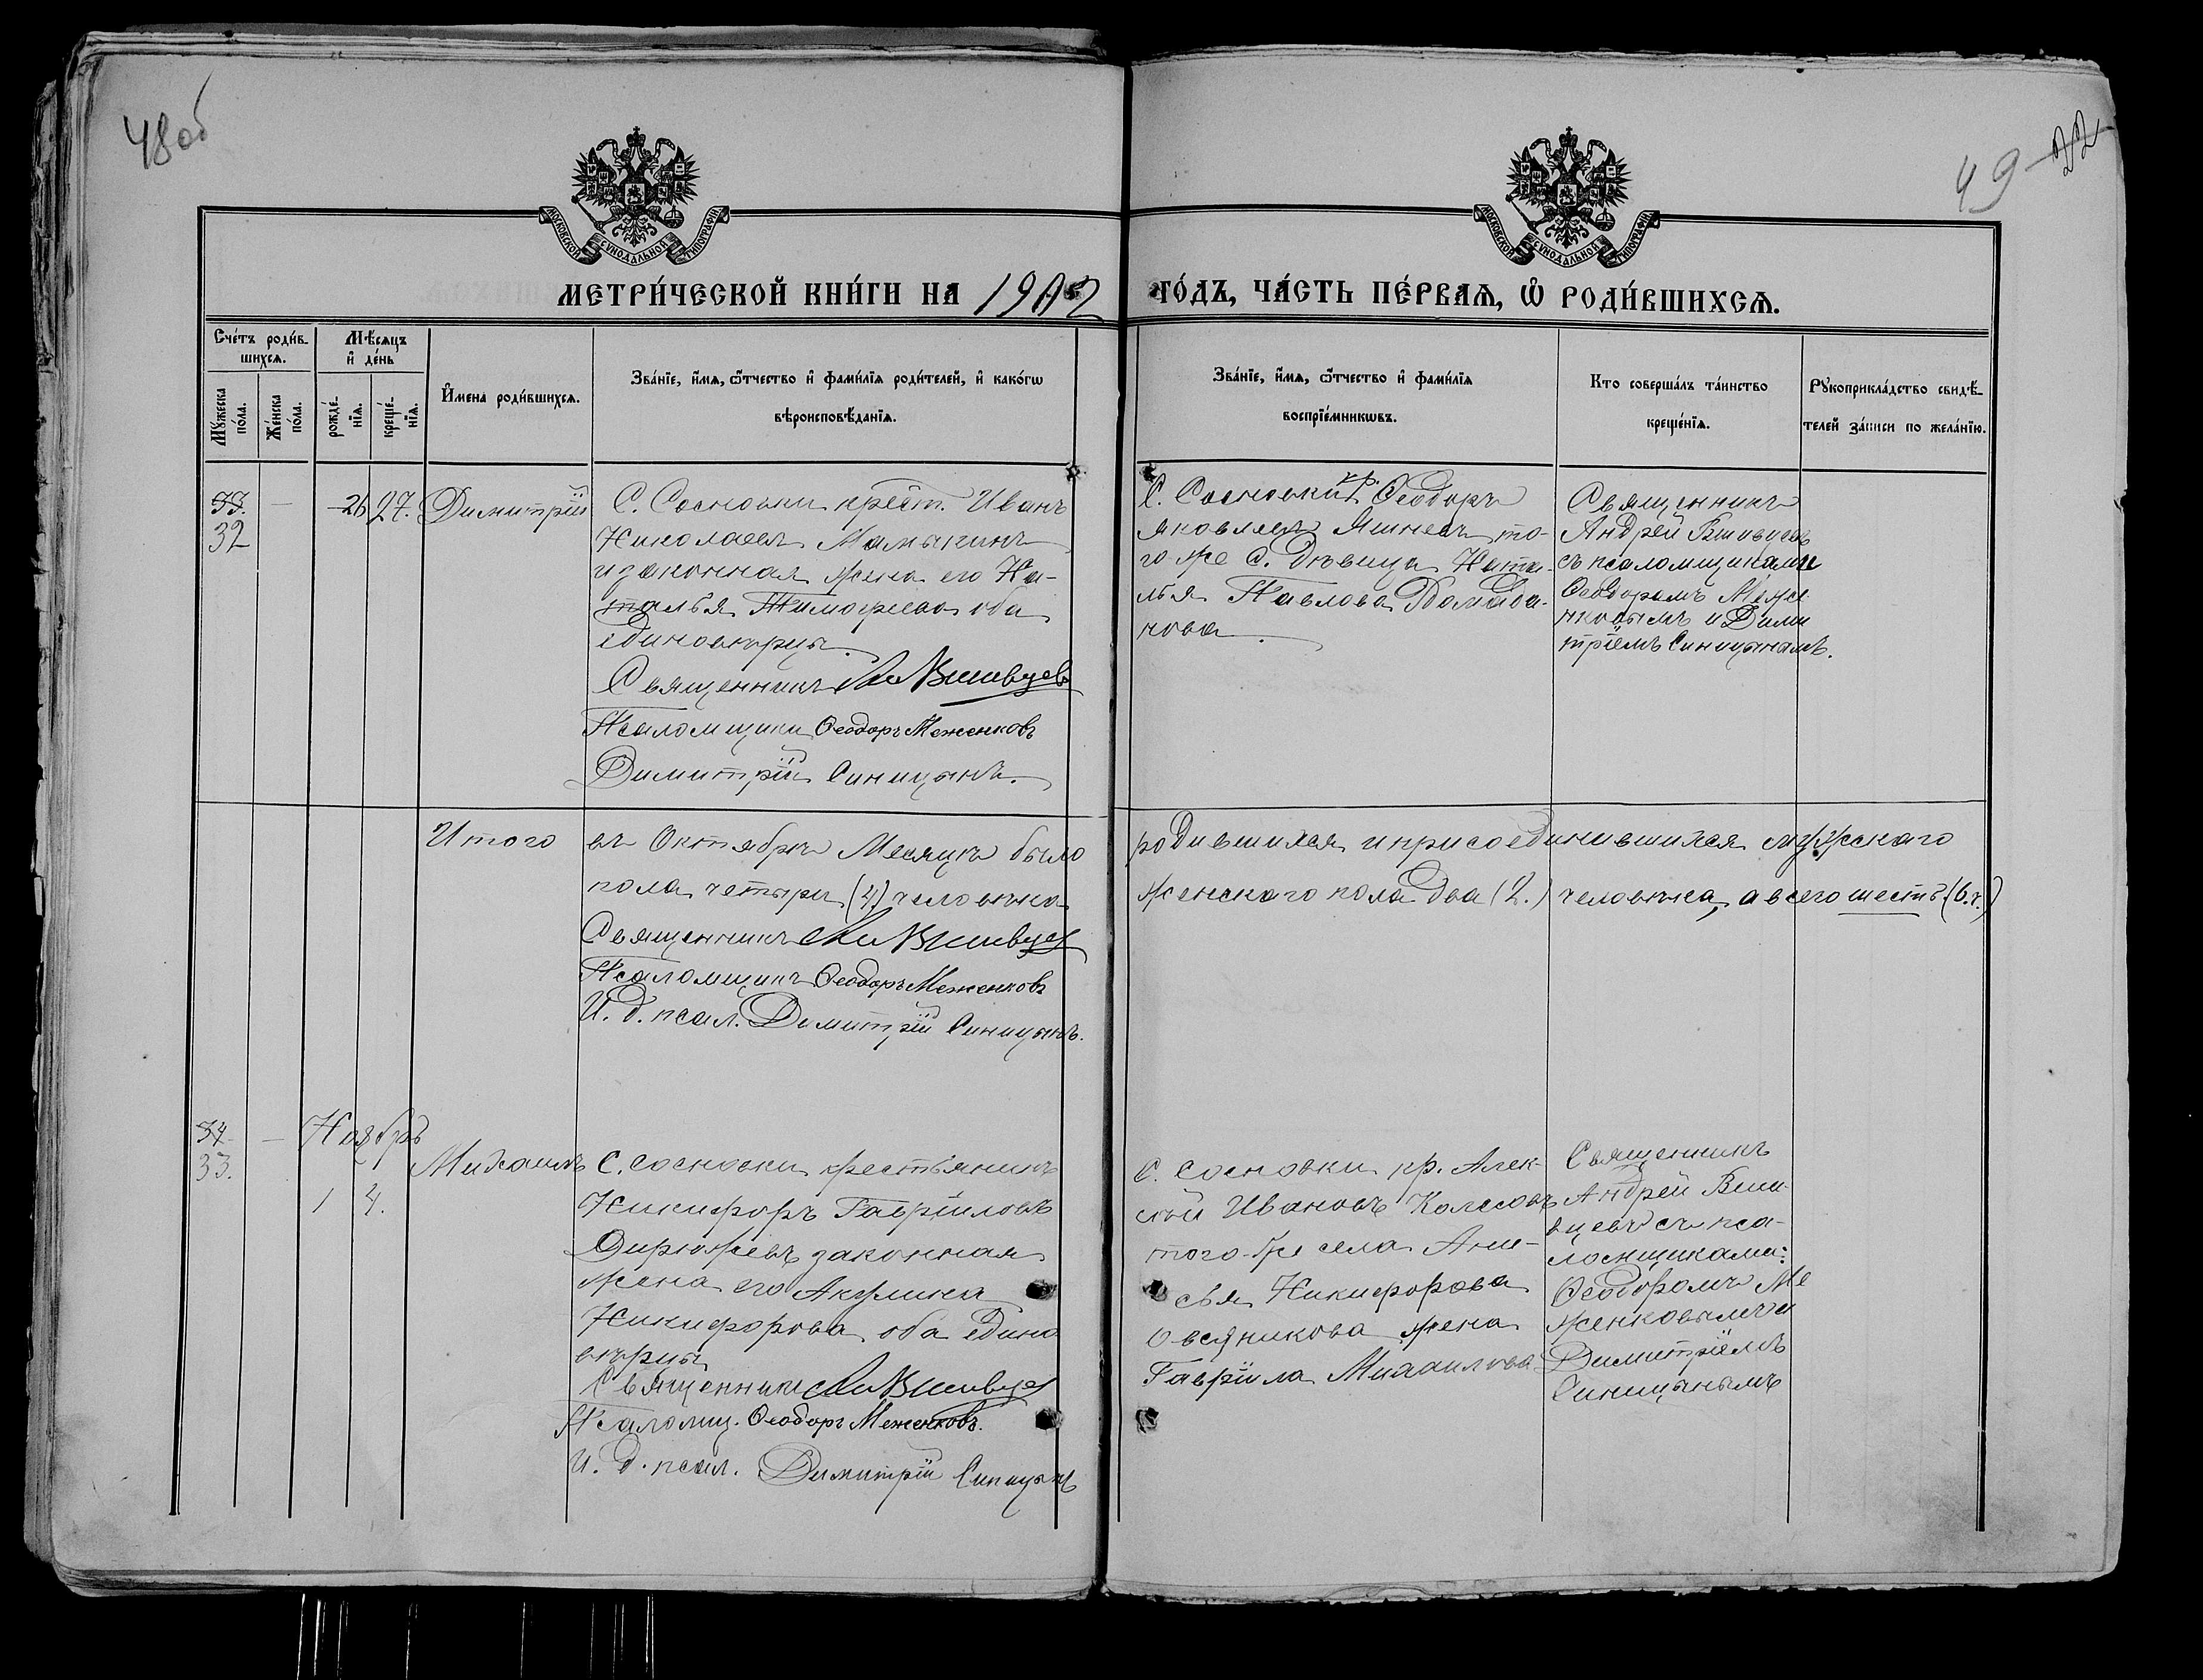 48об
49 22
МОСКОВСКОЙ СѴНОДАЛЬНОЙ ТИПОГРАФІИ
МОСКОВСКОЙ СѴНОДАЛЬНОЙ ТИПОГРАФІИ
МЕТРИ́ЧЕСКОЙ КНИ́ГИ НА 1902
ГО́ДЪ, ЧА́СТЬ ПЕ́РВАѦ, Ѽ РОДИ́ВШИХСѦ.
Сче́тъ роди́в-
шихсѧ.
Мꙋ́жеска
по́ла.
Же́нска
по́ла.
Мѣ́сѧцъ
и҆ де́нь
рожде́-
нїѧ.
креще́-
нїѧ.
И҆мена роди́вшихсѧ.
Зва́нїе, и҆́мѧ, ѻ҆́тчество и҆ фами́лїѧ роди́телей, и҆ како́гѡ
вѣроисповѣ́данїѧ.
Зва́нїе, и҆́мѧ, ѻ҆́тчество и҆ фами́лїѧ
воспрїе́мникѡвъ.
Кто соверша́лъ та́инство
креще́нїѧ.
Рꙋкоприкла́дство свидѣ́-
телей за́писи по жела́нїю.
33.
32
—
26 27.
Димитрій
С. Сосновки крест. Иванъ
Николаевъ Мамыкинъ
и законная жена его На-
талья Тимофеева оба
единоверцы.
Священникъ Ан Вшивцев
Псаломщики Ѳеодоръ Меженковъ
Димитрій Синицынъ.
С. Сосновки кр. Ѳеодоръ
Яковлевъ Яшневъ то-
го-же с. Дѣвица Ната-
лья Павлова Домова-
нова.
Священникъ
Андрей Вшивцевъ
съ псаломщиками
Ѳеодоромъ Меже
нковымъ и Дими
тріемъ Синицынымъ.
Итого
въ Октябрѣ Месяцѣ было
родившихся и присоединившихся мужскаго
пола четыре (4) человѣка
женскаго пола два (2.) человѣка, а всего шесть (6.ч.)
Священникъ Ан Вшивцев
Псаломщикъ Ѳеодоръ Меженковъ
И. д. псал. Димитрій Синицынъ.
34.
33.
—
Ноябрь
1 4.
Михаилъ
С. Сосновки крестьянинъ
Никифоръ Гавріиловъ
Дирюжевъ законная
жена его Акулина
Никифорова, оба едино
вѣрцы
Священникъ Ан Вшивцев
Псаломщ. Ѳеодоръ Меженковъ.
И. д. псал. Димитрій Синицынъ
С. Сосновки кр. Алек-
сѣй Ивановъ Колесовъ
того-же села Ани-
сья Никифорова
Овсяникова жена
Гавріила Михаилова
Священникъ
Андрей Вши-
вцевъ съ пса-
ломщиками:
Ѳеодоромъ Ме
женковымъ и
Димитріемъ
Синицынымъ